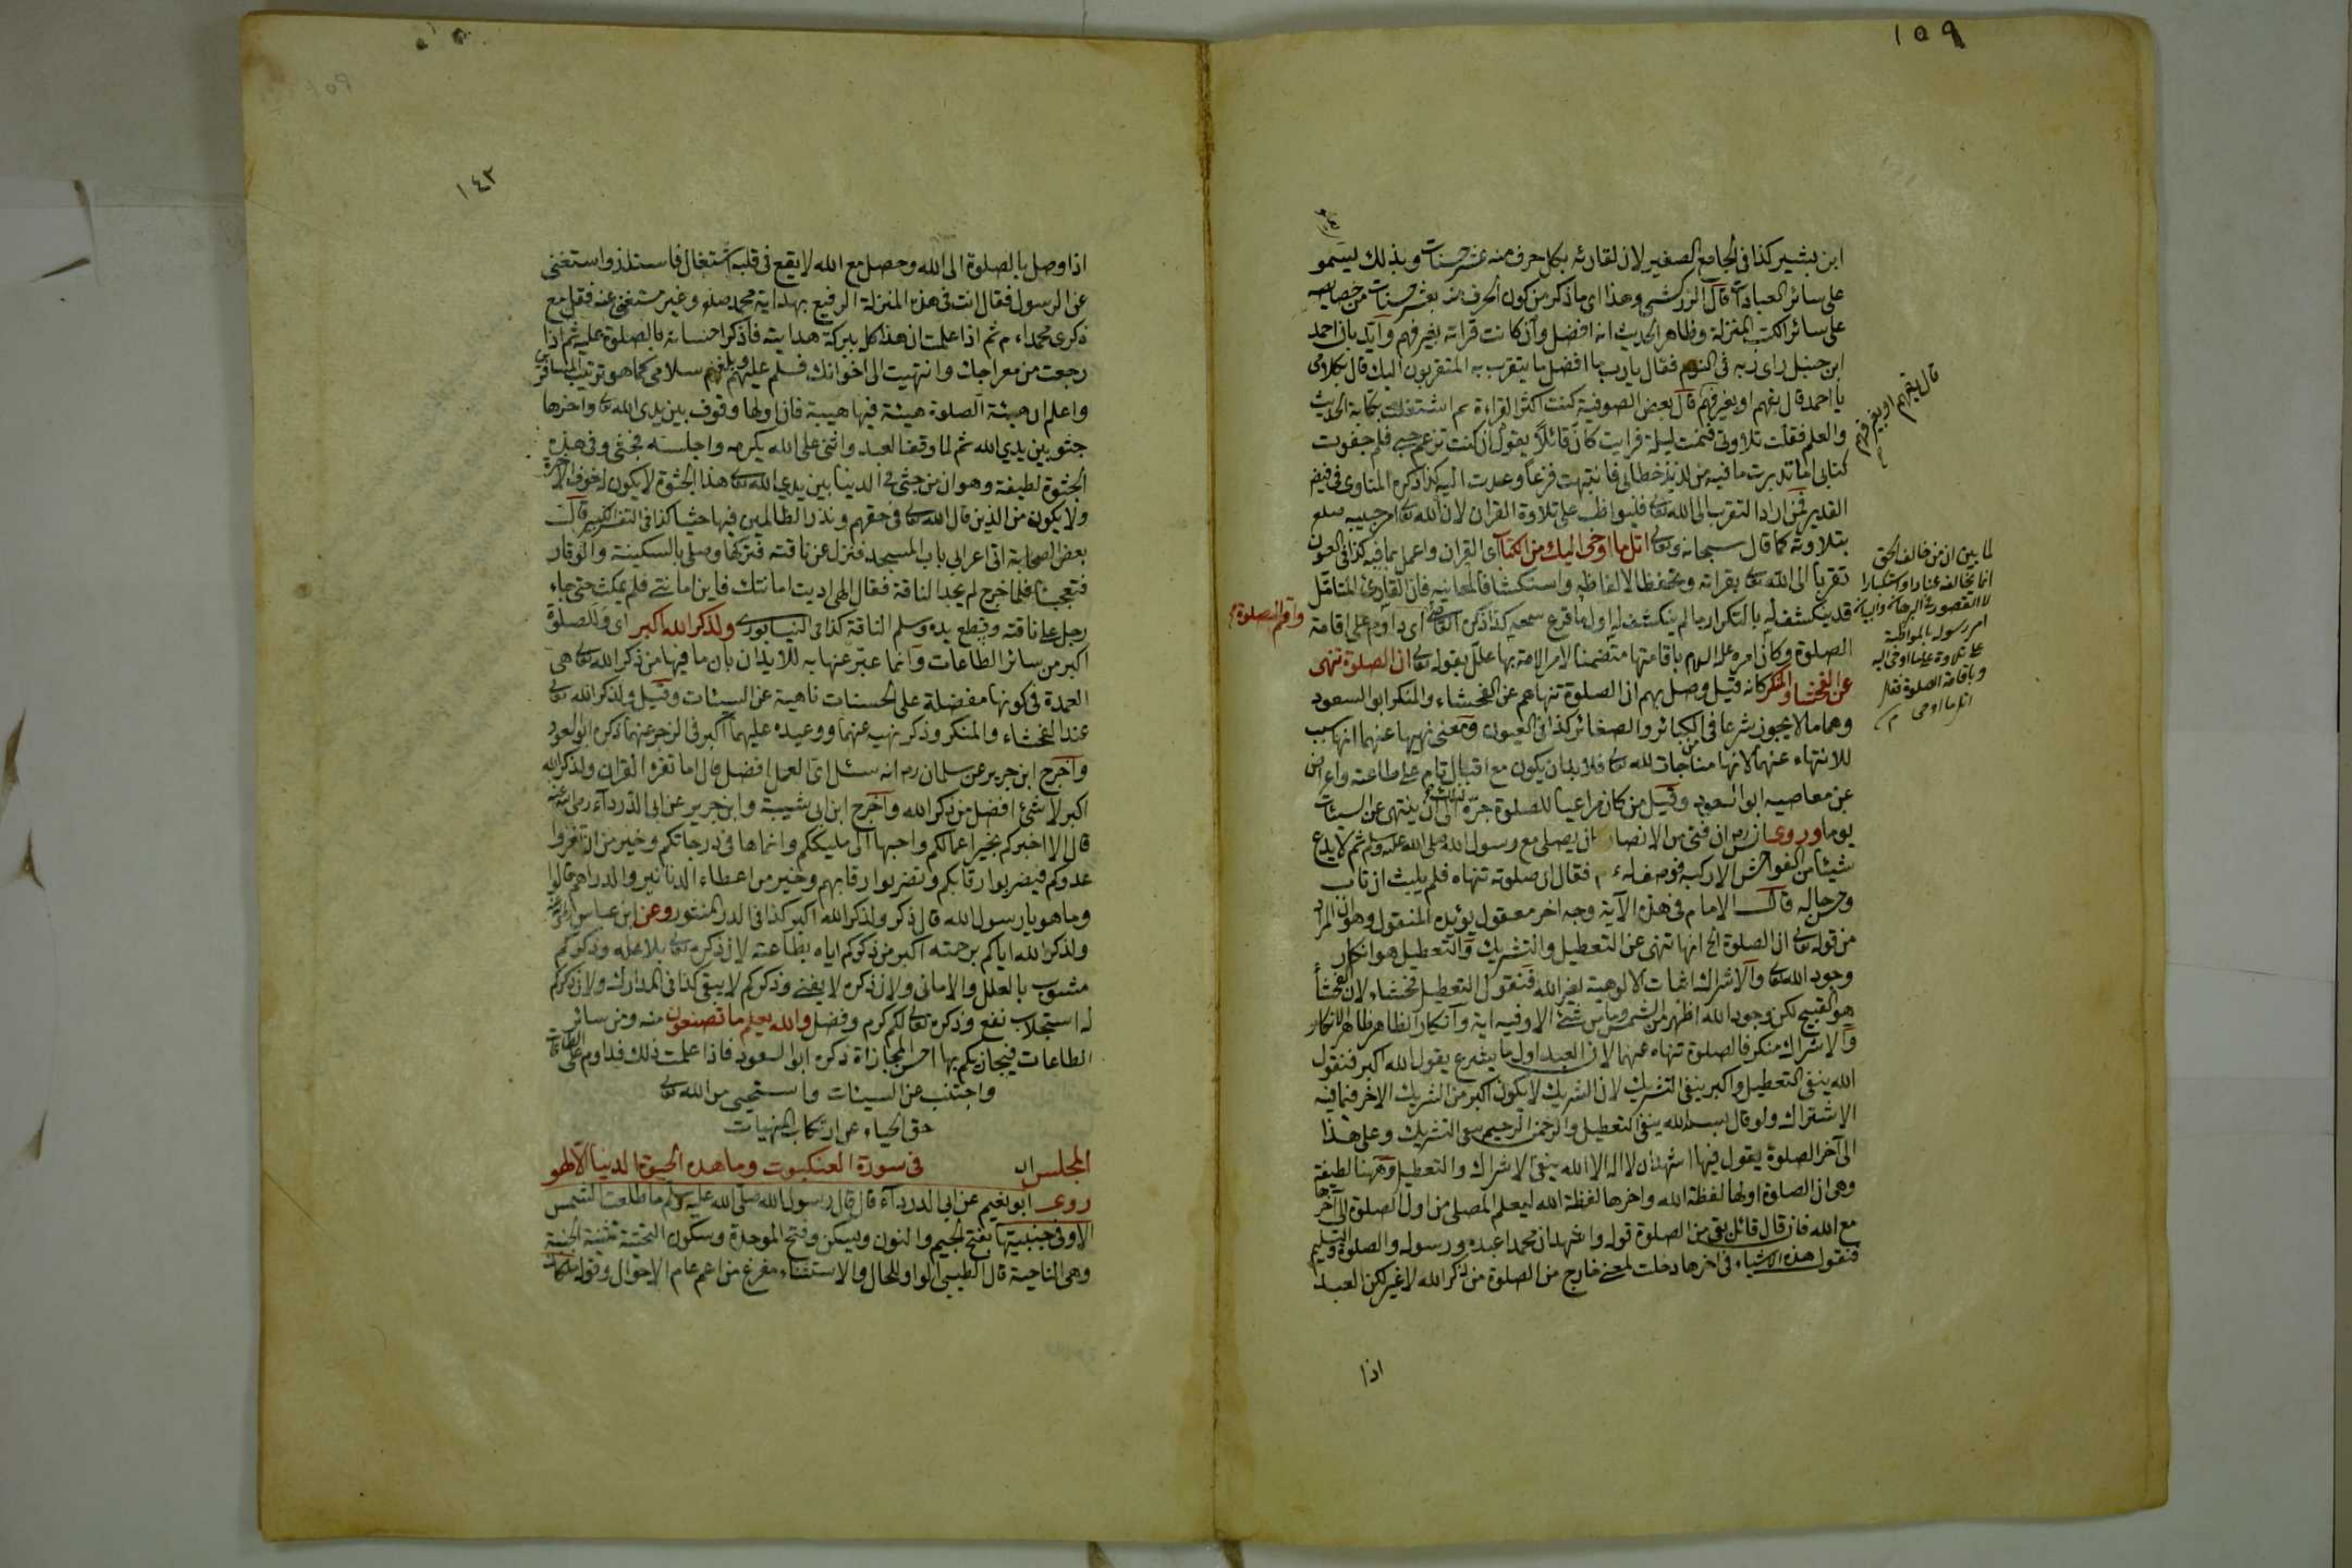 ١٥٩
ابن بشير كذا فى الجامع الصغير لان لقارئه بكل حرف منه عشر حسنات وبذلك يسمو
على سائر العبادات قال الزركشى وهذا اى ما ذكر من كون الحرف منه بعشر حسنات من خصايصه
على سائر الكتب المنزلة وظاهر الحديث انه افضل وان كانت قراته بغير فهم وايد بان احمد
ابن حنبل راى ربه فى النوم فقال يا رب ما افضل ما يتقرب به المتقربون اليك قال بكلامى
يا احمد قال بفهم او بغير فهم قال بعض الصوفية كنت اكثر القراءة ثم اشتغلت بكتابة الحديث
والعلم فقلت تلاوتى فنمت ليلة فرايت كان قائلا يقول ان كنت تزعم حبى فلم جفوت
كتابى اما تدبرت ما فيه من لذيذ خطابى فانتبهت فزعا وعدت اليه كذا ذكره المناوى فى فيض
القدير فمن اراد التقرب الى الله تعالى فليواظب على تلاوة القران لان الله تعالى امر حبيبه صلعم
بتلاوته كما قال سبحانه وتعالى اتل ما اوحى اليك من الكتاب اى القران واعمل بما فيه كذا فى العيون
تقربا الى الله تعالى بقراته وتحفظا لالفاظه واستكشافا لمعانيه فان القارئ المتامل
قد ينكشف له بالتكرار ما لم ينكشف له اول ما قرع سمعه كذا ذكره القاضى اى داوم على اقامة
الصلوة وكان امره عليه السلام باقامتها متضمنا لامر الامة بها علل بقوله تعالى ان الصلوة تنهى
عن الفحشاء والمنكر كانه قيل وصل بهم ان الصلوة تنهاهم عن الفحشاء والمنكر ابو السعود
وهما ما لا يجوز شرعا فى الكبائر والصغائر كذا فى العيون ومعنى نهيها عنهما انها سبب
للانتهاء عنهما لانها مناجات لله تعالى فلا بد ان يكون مع اقبال تام على طاعته واعراض
عن معاصيه ابو السعود وقيل من كان مراعيا للصلوة جره ذلك الى ان ينتهى عن السيئات
يوما وروى ان فتى من الانصار كان يصلى مع رسول الله صلى الله عليه وسلم ثم لا يدع
شيئا من الفواحش الا ركبه فوصف له ء م فقال ان صلوته تنهاه فلم يلبث ان تاب
وحسن حاله قال الامام فى هذه الآية وجه اخر معقول يؤيده المنقول وهو ان المراد
من قوله تعالى ان الصلوة الخ انها تنهى عن التعطيل والتشريك والتعطيل هو انكار
وجود الله تعالى والاشراك اثبات الالوهية لغير الله فنقول التعطيل فحشاء لان الفحشاء
هو القبيح لكن وجود الله اظهر من الشمس وما من شئ الا وفيه اية وانكار الظاهر ظاهر الانكار
والاشراك منكر فالصلوة تنهاه عنهما لان العبد اول ما يشرع يقول الله اكبر فنقول
الله ينفى التعطيل واكبر ينفى التشريك لان الشريك لا يكون اكبر من الشريك الاخر فما فيه
الاشتراك ولو قال بسم الله ينفى التعطيل والرحمن الرحيم ينفى التشريك وعلى هذا
الى آخر الصلوة يقول فيها اشهد ان لا اله الا الله ينفى الاشراك والتعطيل وههنا لطيفة
وهى ان الصلوة اولها لفظة الله واخرها لفظة الله ليعلم المصلى من اول الصلوة الى آخرها
مع الله فان قال قائل بقى من الصلوة قوله واشهد ان محمدا عبده ورسوله والصلوة والتسليم
فنقول هذه الاشياء فى اخرها دخلت لمعنى خارج من الصلوة من ذكر الله لا غير لكن العبد
اذا
قال بفهم او بغير فهم
لما بين ان من خالف الحق
انما يخالفه عنادا واستكبارا
لا لقصور فى البرهان والبيان
امر رسوله بالمواظبة
على تلاوة ما اوحى اليه
وباقامة الصلوة فقال
اتل ما اوحى م
واقم الصلوة
١٤٣
اذا وصل بالصلوة الى الله وحصل مع الله لا يقع فى قلبه اشتغال فاستلذ واستغنى
عن الرسول فقال انت فى هذه المنزلة الرفيع بهداية محمد صلعم وغير مستغنى عنه فقل مع
ذكرى محمدا ء م ثم اذا علمت ان هذا كله ببركة هدايته فاذكر احسانه بالصلوة عليه ثم اذا
رجعت من معراجك وانتهيت الى اخوانك فسلم عليهم وبلغهم سلامى كما هو ترتيب المسافرين
واعلم ان هيئة الصلوة هيئة فيها هيبة فان اولها وقوف بين يدى الله تعالى واخرها
جثو بين يدي الله ثم لما وقف العبد واثنى على الله يكرمه واجلسه فجثى وفى هذه
الجثوة لطيفة وهو ان من جثى فى الدنيا بين يدي الله تعالى هذا الجثوة لا يكون له خوف الآخرة
ولا يكون من الذين قال الله تعالى فى حقهم ونذر الظالمين فيها جثيا كذا فى التفسير الكبير قالت
بعض الصحابة اتى اعرابى باب المسجد فنزل عن ناقته فتركها وصلى بالسكينة والوقار
فتعجبنا فلما خرج لم يجد الناقة فقال الهى اديت امانتك فاين امانتى فلم يمكث حتى جاء
رجل على ناقته وقطع يده وسلم الناقة كذا فى النيسابورى ولذكر الله اكبر اى وللصلوة
اكبر من سائر الطاعات وانما عبر عنها به للايذان بان ما فيها من ذكر الله تعالى هى
العمدة فى كونها مفضلة على الحسنات ناهية عن السيئات وقيل ولذكر الله تعالى
عند الفحشاء والمنكر وذكر نهيه عنهما ووعيده عليهما اكبر فى الزجر عنهما ذكره ابو السعود
واخرج ابن جرير عن سلمان رض انه سئل اى العمل افضل قال اما تقرؤ القران ولذكر الله
اكبر لا شئ افضل من ذكر الله واخرج ابن ابى شيبة وابن جرير عن ابى الدرداء رضى الله عنه
قال الا اخبركم بخير اعمالكم واحبها الى مليككم وانماها فى درجاتكم وخير من ان تغزوا
عدوكم فيضربوا رقابكم وتضربوا رقابهم وخير من اعطاء الدنانير والدراهم قالوا
وما هو يا رسول الله قال ذكر ولذكر الله اكبر كذا فى الدر المنثور وعن ابن عباس
ولذكر الله اياكم برحمته اكبر من ذكركم اياه بطاعته لان ذكره تعالى بلا علة وذكركم
مشوب بالعلل والامانى ولان ذكره لا يفنى وذكركم لا يبقى كذا فى المدارك ولان ذكركم
له استجلاب نفع وذكره تعالى لكم كرم وفضل والله يعلم ما تصنعون منه ومن سائر
الطاعات فيجازيكم بها احسن المجازاة ذكره ابو السعود فاذا علمت ذلك فداوم على الطاعات
واجتنب عن السيئات واستحيى من الله تعالى
حق الحياء عن ارتكاب المنهيات
المجلس فى سورة العنكبوت وما هذه الحيوة الدنيا الا لهو
روى ابو نعيم عن ابى الدرداء قال قال رسول الله صلى الله عليه وسلم ما طلعت الشمس
الا وفى جنبتيها بفتح الجيم والنون ويسكن وفتح الموحدة وسكون التحتية تثنية الجنبة
وهى الناحية قال الطيبى الواو للحال والاستثناء مفرغ من اعم عام الاحوال وقوله ملكان